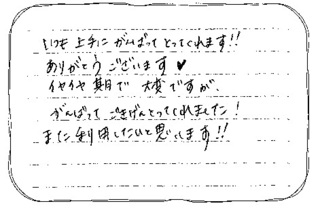 いつも上手にがんばってとってくれます!!
ありがとうございます♥
イヤイヤ期で 大変ですが、
がんばって ごきげんとってくれました!
また利用したいと思いします!!